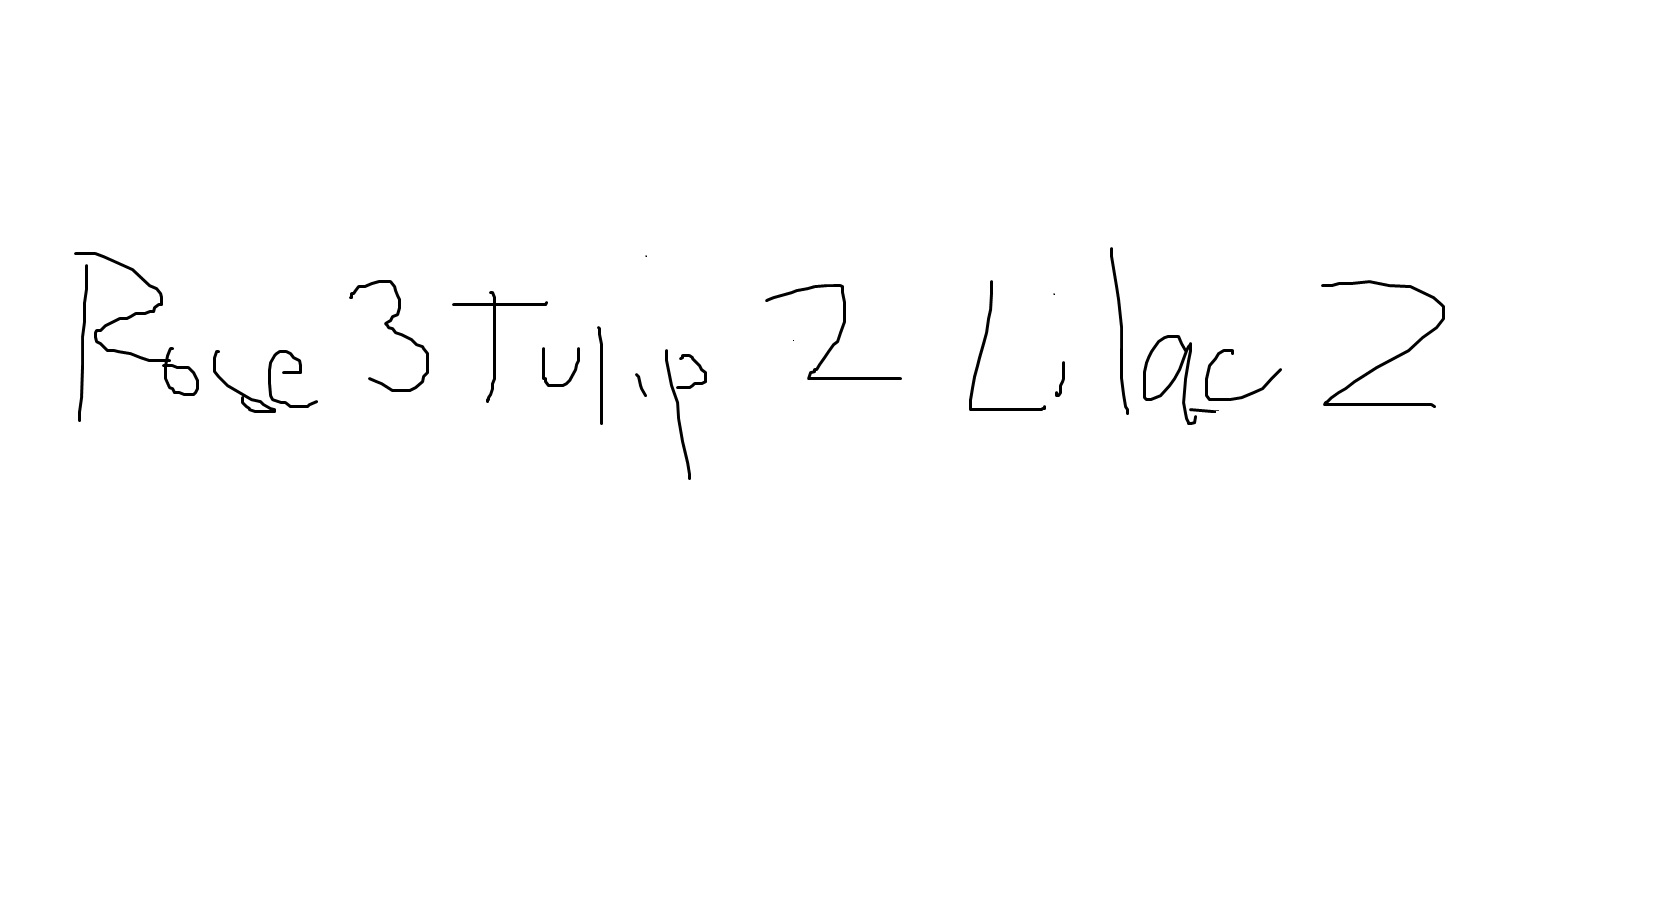 Rose 3 Tulip 2 Lilac 2